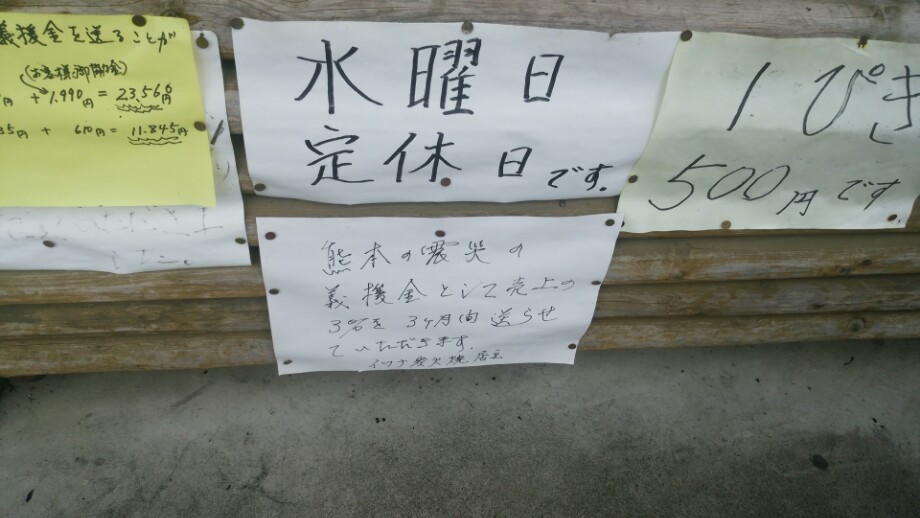 義援金を送ることが
(お客様御開金)
円 + 1,990円 = 23,566円
35円 + 610円 = 11.845円
した。
水曜日
定休日です.
1ぴき
500円です.
熊本の震災の
義援金として売上の
3%を3ヶ月間送らせ
ていただきます.
イワナ炭火焼 店主